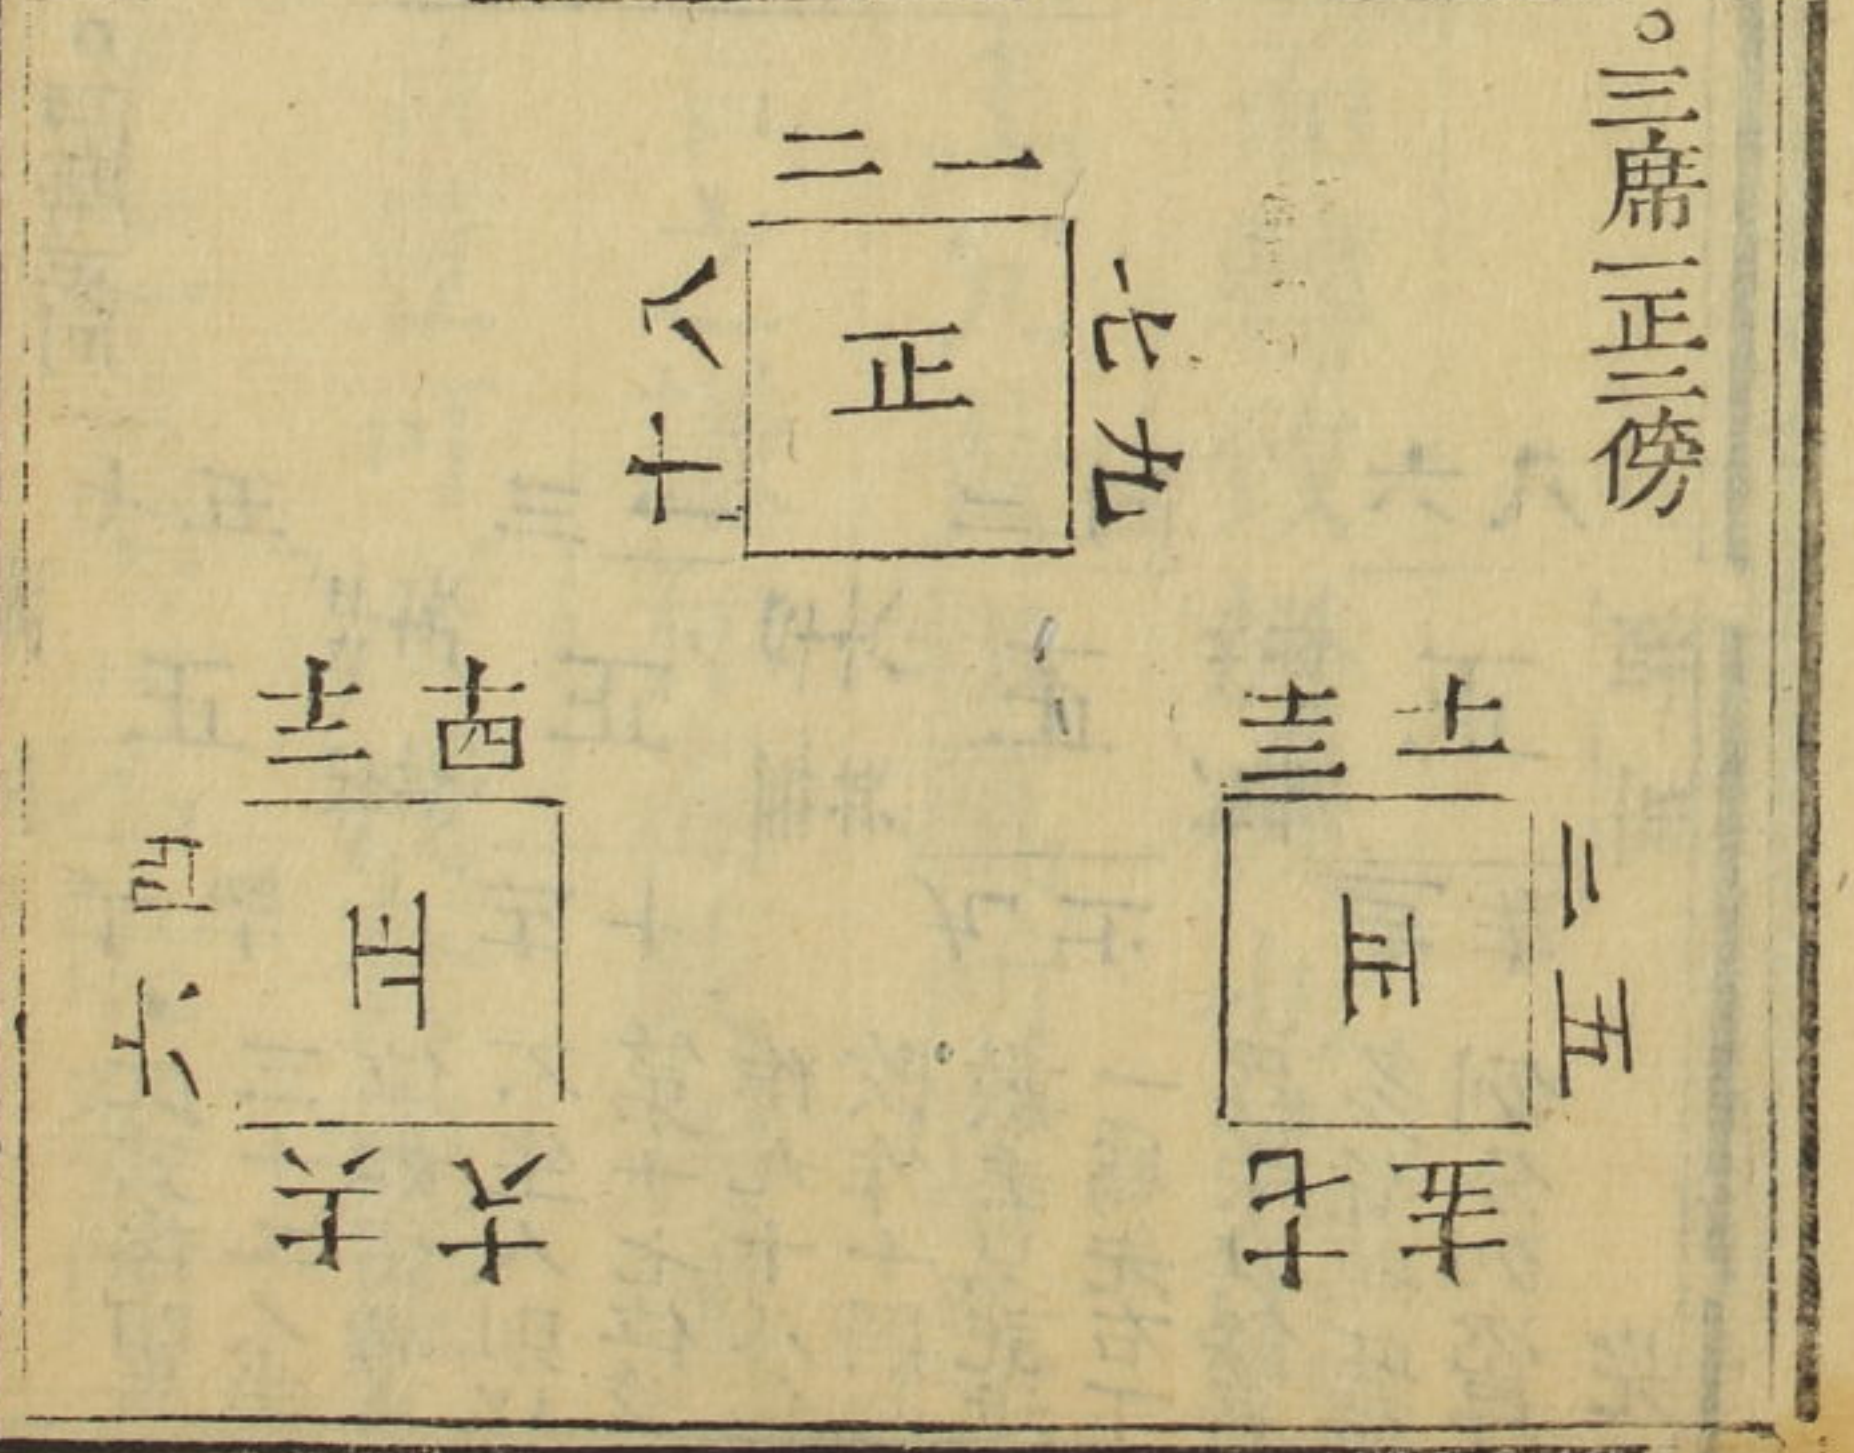 ○三席一正二傍
一
二
七
九
正
八
十
十一
十三
三
五
正
十五
十七
十四
十二
正
四
六
十八
十六